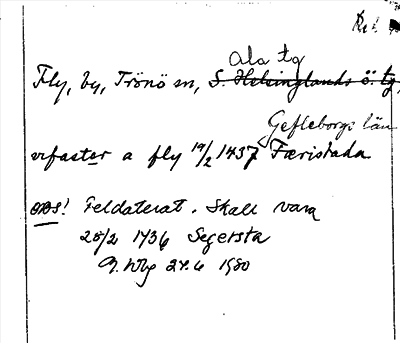 Ala tg
Fly, by, Trönö sn, S. Helsinglands ö. tg,
Gefleborgs län
vrfaster a fly 19/2 1437 Færistada
OBS! Feldaterat. Skall vara
28/2 1436 Segersta
24.6 1980